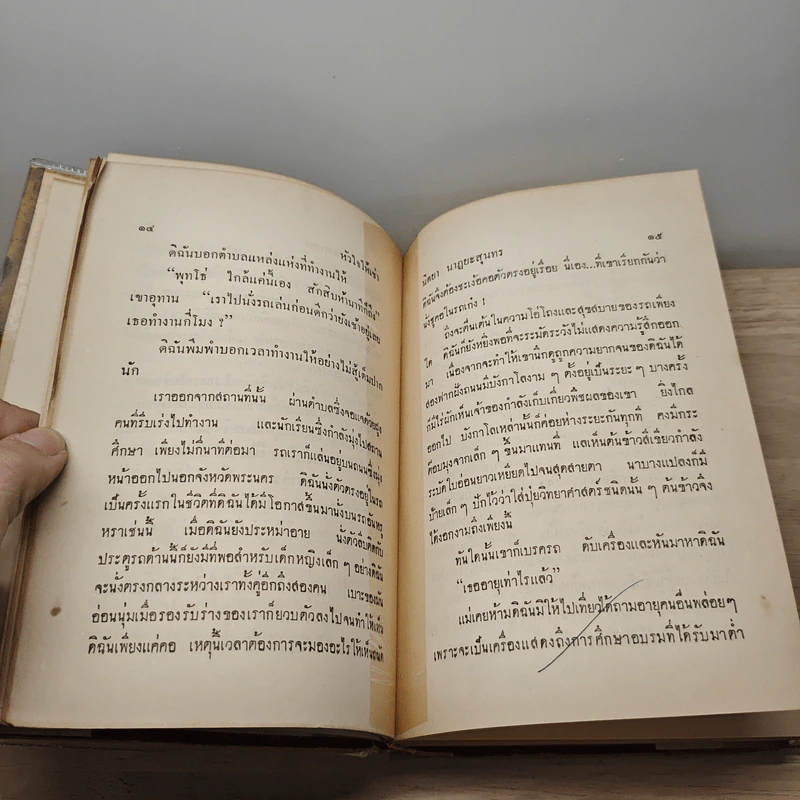 ๑๔
หัวใจให้เช่า
ดิฉันบอกตำบลแหล่งแห่งที่ทำงานให้
“พุทโธ่ ใกล้แค่นี้เอง สักสิบห้านาทีก็ถึง”
เขาอุทาน “เราไปนั่งรถเล่นก่อนดีกว่ายังเช้าอยู่เลย
เธอทำงานกี่โมง ?”
ดิฉันพึมพำบอกเวลาทำงานให้อย่างไม่สู้เต็มปาก
นัก
เราออกจากสถานที่นั้น ผ่านตำบลซึ่งจอแจด้วยฝูง
คนที่รีบเร่งไปทำงาน และนักเรียนซึ่งกำลังมุ่งไปสถาน
ศึกษา เพียงไม่กี่นาทีต่อมา รถเราก็แล่นอยู่บนถนนซึ่งมุ่ง
หน้าออกไปนอกจังหวัดพระนคร ดิฉันนั่งตัวตรงอยู่ในรถ
เป็นครั้งแรกในชีวิตที่ดิฉันได้มีโอกาสขึ้นมานั่งบนรถอันหรู
หราเช่นนี้ เมื่อดิฉันยังประหม่าอาย นั่งตัวลีบติดกับ
ประตูรถด้านนี้ก็ยังมีที่พอสำหรับเด็กหญิงเล็ก ๆ อย่างดิฉัน
จะนั่งตรงกลางระหว่างเราทั้งคู่อีกถึงสองคน เบาะของมัน
อ่อนนุ่มเมื่อรองรับร่างของเราก็ยวบตัวลงไปจนทำให้เห็น
ดิฉันเพียงแค่คอ เหตุนี้เวลาต้องการจะมองอะไรให้เห็นถนัด
๑๕
นิตยา นาฏยะสุนทร
ดิฉันจึงต้องชะเง้อคอตัวตรงอยู่เรื่อย นี่เอง...ที่เขาเรียกกันว่า
นั่งชูคอในรถเก๋ง !
ถึงจะตื่นเต้นในความโอ่โถงและสุขสบายของรถเพียง
ใด ดิฉันก็ยังหยิ่งพอที่จะระมัดระวังไม่แสดงความรู้สึกออก
มา เนื่องจากจะทำให้เขานึกดูถูกความยากจนของดิฉันได้
สองฟากฝั่งถนนมีบังกาโลงาม ๆ ตั้งอยู่เป็นระยะ ๆ บางครั้ง
ก็มีไร่ผักเห็นเจ้าของกำลังเก็บเกี่ยวพืชผลของเขา ยิ่งไกล
ออกไป บังกาโลเหล่านั้นก็ค่อยห่างระยะกันทุกที คงมีกระ
ต๊อบมุงจากเล็ก ๆ ขึ้นมาแทนที่ แลเห็นต้นข้าวสีเขียวกำลัง
ระบัดใบอ่อนยาวเหยียดไปจนสุดสายตา นาบางแปลงก็มี
ป้ายเล็ก ๆ ปักไว้ว่าใส่ปุ๋ยวิทยาศาสตร์ชนิดนั้น ๆ ต้นข้าวจึง
ได้งอกงามถึงเพียงนี้
ทันใดนั้นเขาก็เบรครถ ดับเครื่องและหันมาหาดิฉัน
“เธออายุเท่าไรแล้ว”
แม่เคยห้ามดิฉันมิให้ไปเที่ยวได้ถามอายุคนอื่นพล่อยๆ
เพราะจะเป็นเครื่องแสดงถึงการศึกษาอบรมที่ได้รับมาต่ำ